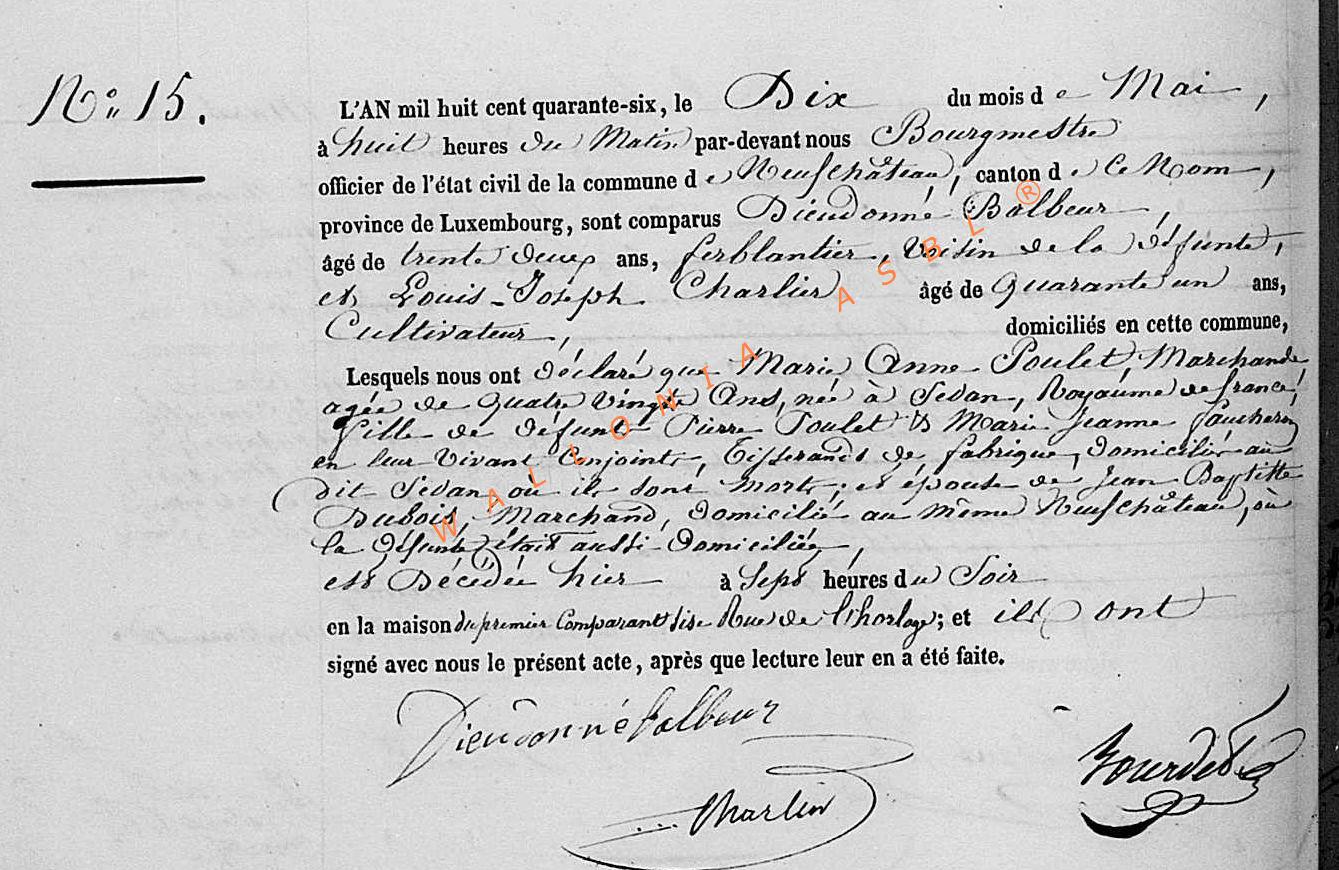 N° 15.
L'AN mil huit cent quarante-six, le Dix du mois de Mai,
à huit heures du Matin par-devant nous Bourgmestre
officier de l'état civil de la commune de Neufchâteau, canton de ce Nom,
province de Luxembourg, sont comparus Dieudonné Balbeur,
âgé de trente deux ans, ferblantier, Voisin de la défunte,
et Louis-Joseph Charlier âgé de Quarante un ans,
Cultivateur, domiciliés en cette commune,
Lesquels nous ont déclaré que Marie Anne Poulet, Marchande
agée de Quatre Vingts Ans, née à Sedan, Royaume de france,
fille de défunts Pierre Poulet & Marie Jeanne
en leur Vivant Conjoints, Tisserands de fabrique, domiciliés au
dit Sedan où ils sont morts; et épouse de Jean Baptiste
Dubois, Marchand, domicilié au même Neufchâteau, où
la défunte était aussi domiciliée,
est Décédée hier à Sept heures du Soir
en la maison du premier Comparant sise Rue de l'horloge; et ils ont
signé avec nous le présent acte, après que lecture leur en a été faite.
Dieudonné Balbeur
Charlier
WALLONIA ASBL ®